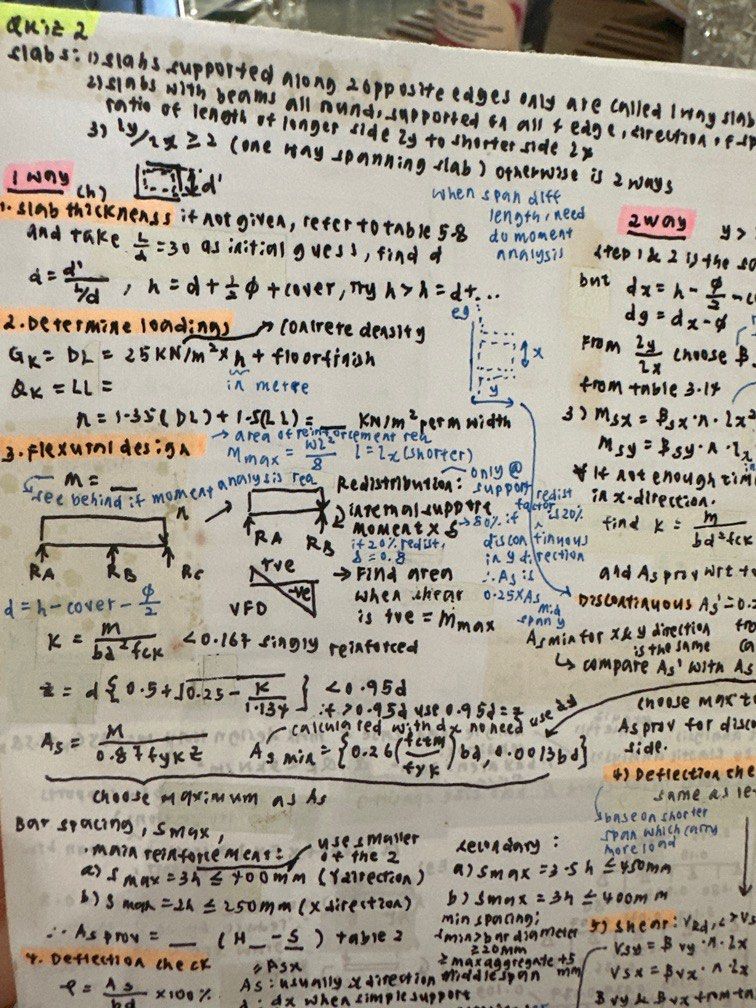 Quiz 2
slabs: 1) slabs supported along 2 opposite edges only are called 1 way slab
2) slabs with beams all round, supported on all 4 edge, direction of sp
ratio of length of longer side ly to shorter side lx
3) ly/lx ≥ 2 (one way spanning slab) otherwise is 2 ways
1 way
(h)
d'
1. slab thickness if not given, refer to table 5-8
and take L/d = 30 as initial guess, find d
d = d'/L/d , h = d + 1/2 φ + cover, try h > h = d+...
when span diff
length, need
do moment
analysis
2. Determine loadings → concrete density
GK = DL = 25 KN/m² × h + floor finish
QK = LL =
in metre
n = 1.35(DL) + 1.5(LL) = __ KN/m² per m width
eg
x
y
3. Flexural design
→ area of reinforcement req
Mmax = WL²/8 l = lx (shorter)
M = __
see behind if moment analysis req
n
RA RB RC
RA RB
Redistribution: only @ support
↳ internal support
moment × δ → 80% if
if 20% redist,
δ = 0.8
redist
factor is 20%
discontinuous
in y direction
∴ As is
0.25×As
mid
span y
+ve
-ve
VFD
→ Find area
when shear
is +ve = Mmax
d = h - cover - φ/2
K = M/bd²fck < 0.167 singly reinforced
z = d{0.5 + √0.25 - K/1.134} < 0.95d
if > 0.95d use 0.95d = z
calculated with dx no need use dy
As = M/0.87fyk z
As min = {0.26(fctm/fyk)bd, 0.0013bd}
choose maximum as As
Bar spacing, smax,
main reinforcement:
use smaller
of the 2
a) smax = 3h ≤ 400mm (Y direction)
b) smax = 2h ≤ 250mm (x direction)
∴ As prov = __ (H__ S__) table 2
secondary:
a) smax = 3.5h ≤ 450mm
b) smax = 3h ≤ 400mm
min spacing:
≥ min > bar diameter
≥ 20mm
≥ max aggregate + 5 mm
4. Deflection check
ρ = As/bd × 100%
As: usually x direction middle span
d: dx when simple support
2 way
step 1 & 2 is the sa
but dx = h - φ/2 - c
dy = dx - φ
From ly/lx choose β
from table 3.14
3) Msx = βsx · n · lx²
Msy = βsy · n · lx
* If not enough tim
in x-direction.
find K = M/bd²fck
and As prov wrt to
Discontinuous As' = 0.
As min for x & y direction
is the same
↳ compare As' with As
choose max t
As prov for disco
side.
4) Deflection che
same as le
base on shorter
span which carry
more load
5) shear: VRd,c > Vs
Vsy = βvy · n · lx
Vsx = βvx · n · lx
βvy & βvx from ta